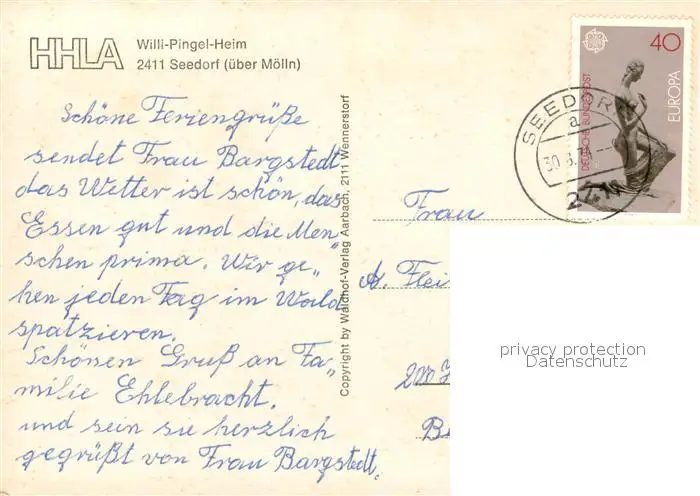 HHLA
Willi-Pingel-Heim
2411 Seedorf (über Mölln)
Schöne Feriengrüße
sendet Frau Bargstedt
das Wetter ist schön, das
Essen gut und die Men
schen prima. Wir ge„
hen jeden Tag im Wald
spatzieren.
Schönen Gruß an Fa„
milie Ehlebracht.
und sein sie herzlich
gegrüßt von Frau Bargstedt.
Copyright by Waldhof-Verlag Aarbach, 2111 Wennerstorf
40
EUROPA
DEUTSCHE BUNDESPOST
SEEDORF
a
24
Frau
A. Flei
privacy protection
Datenschutz